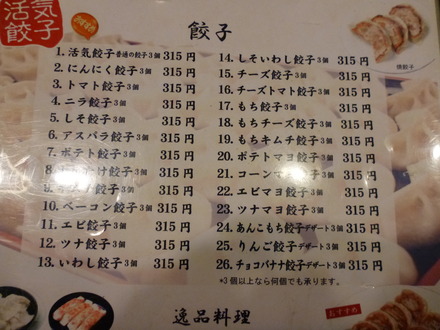 活気
餃子
餃子
焼餃子
1. 活気餃子 普通の餃子3個 315円
2. にんにく餃子3個 315円
3. トマト餃子3個 315円
4. ニラ餃子3個 315円
5. しそ餃子3個 315円
6. アスパラ餃子3個 315円
7. ポテト餃子3個 315円
8. 餃子3個 315円
9. 餃子3個 315円
10. ベーコン餃子3個 315円
11. エビ餃子3個 315円
12. ツナ餃子3個 315円
13. いわし餃子3個 315円
14. しそいわし餃子3個 315円
15. チーズ餃子3個 315円
16. チーズトマト餃子3個 315円
17. もち餃子3個 315円
18. もちチーズ餃子3個 315円
19. もちキムチ餃子3個 315円
20. ポテトマヨ餃子3個 315円
21. コーンマヨ餃子3個 315円
22. エビマヨ餃子3個 315円
23. ツナマヨ餃子3個 315円
24. あんこもち餃子デザート3個 315円
25. りんご餃子デザート3個 315円
26. チョコバナナ餃子デザート3個 315円
*3個以上なら何個でも承ります。
逸品料理
おすすめ